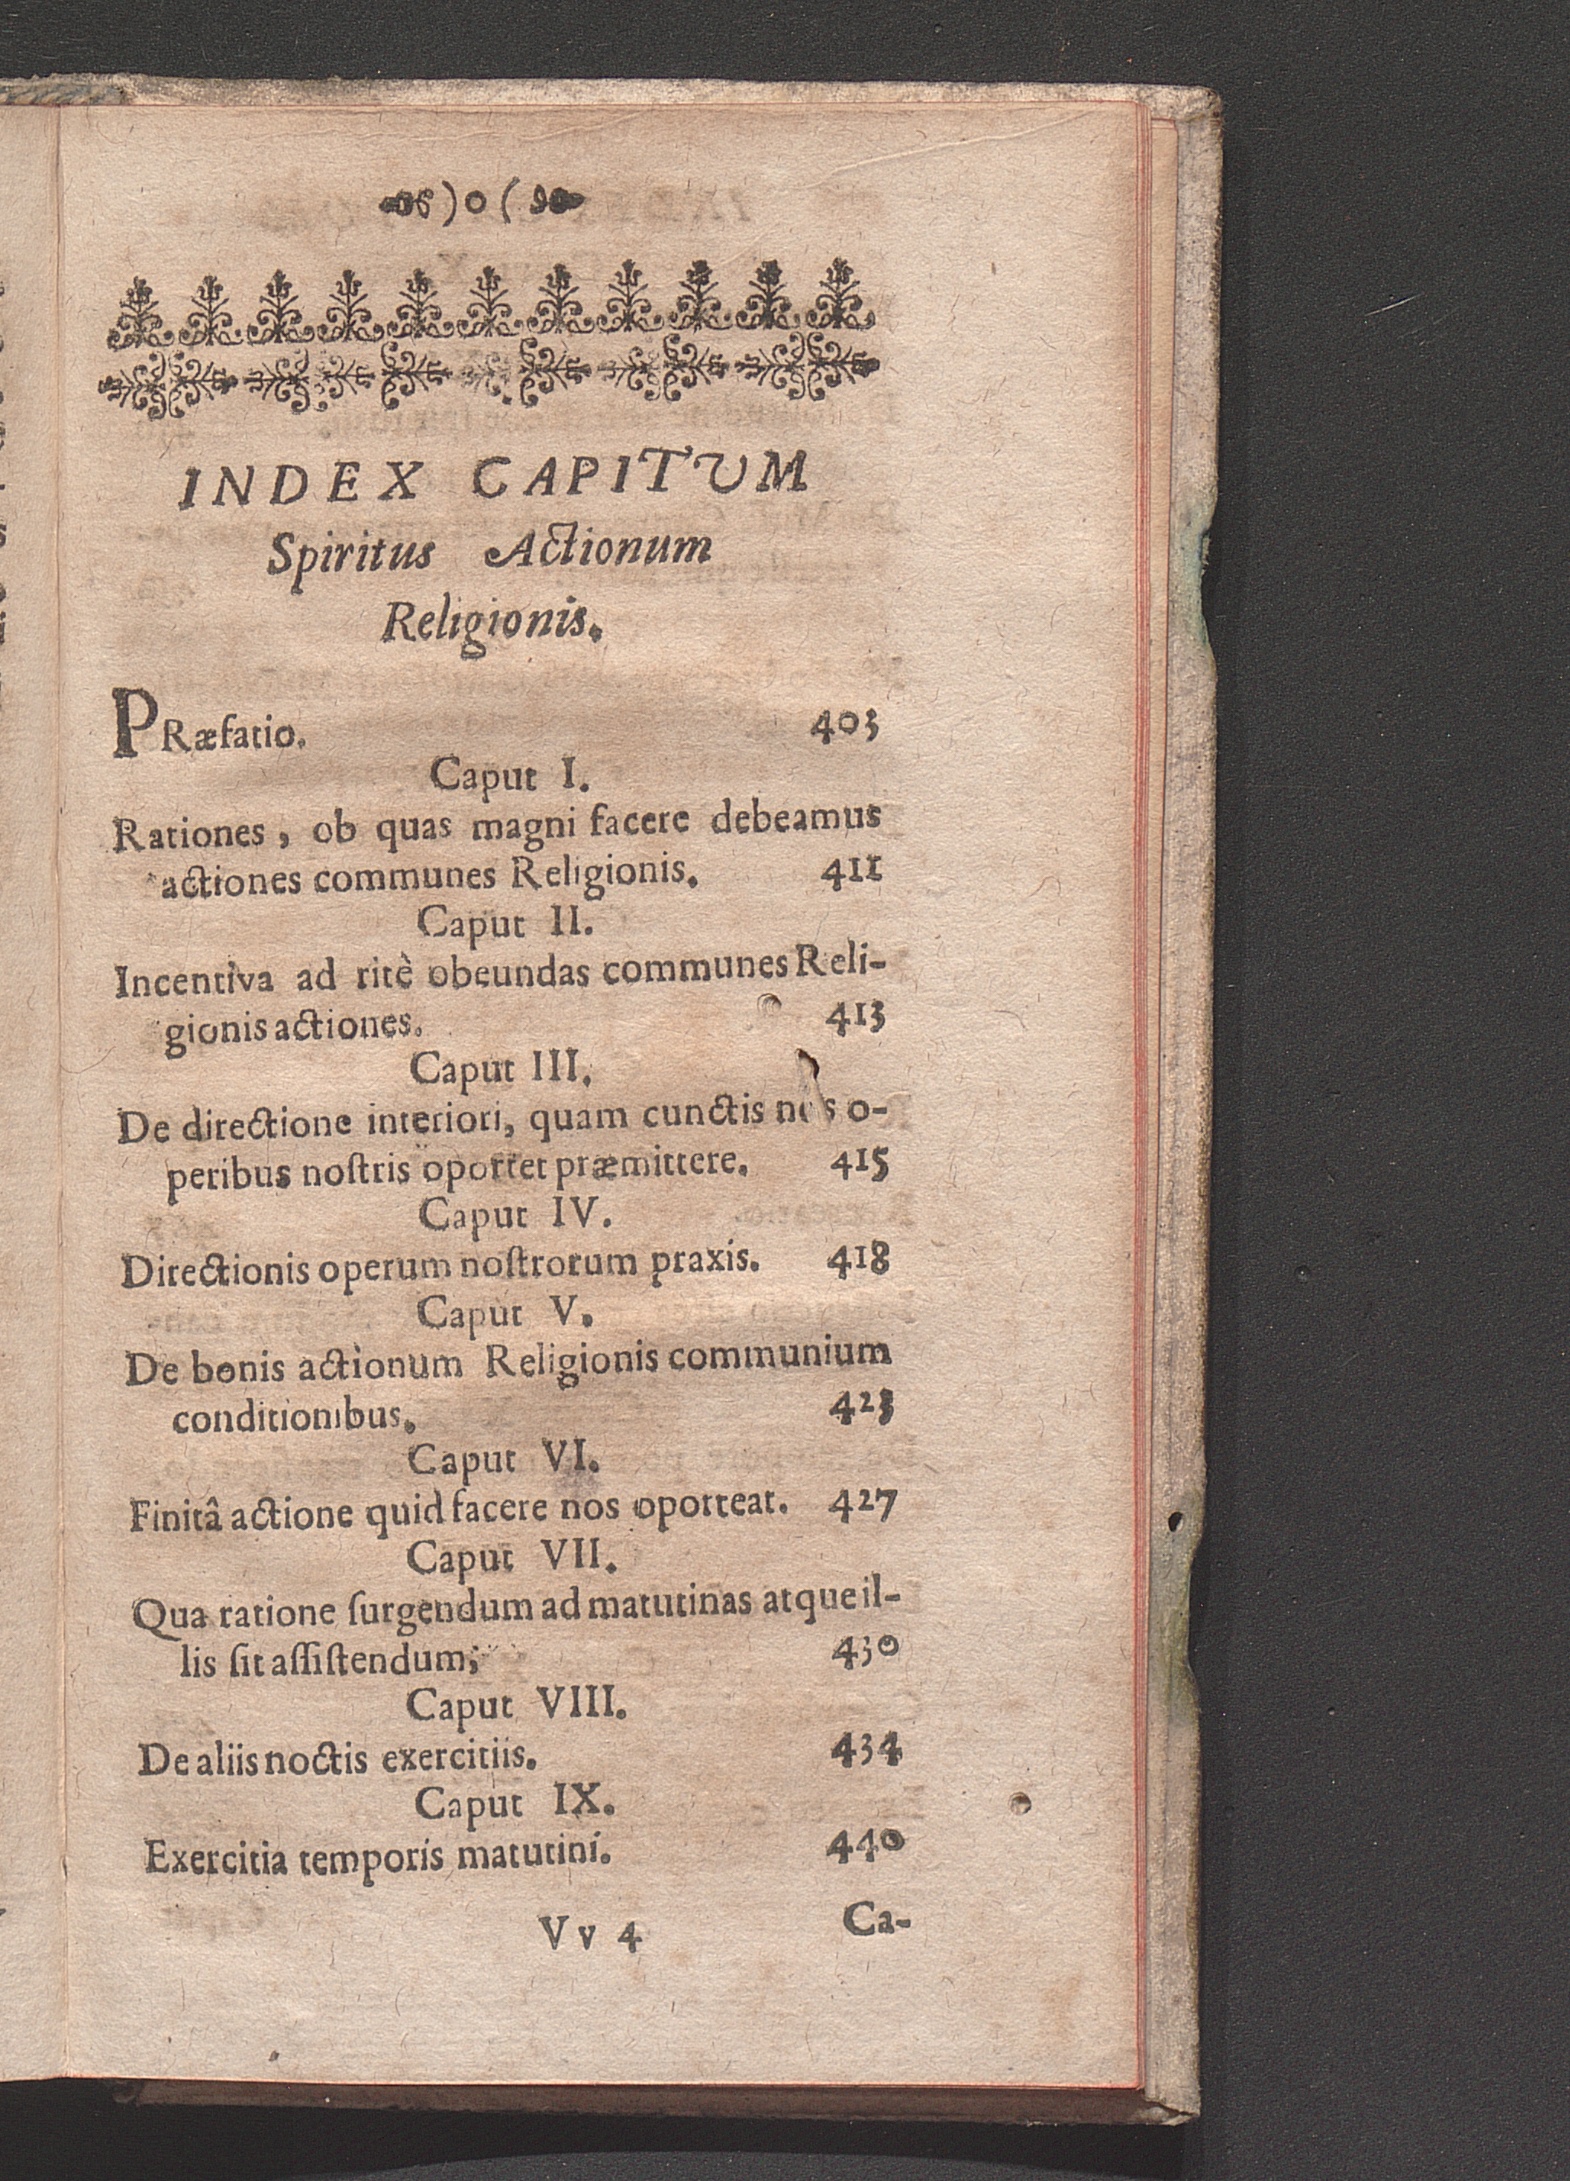 ) o (
INDEX CAPITUM
Spiritus Actionum
Religionis.
PRæfatio. 403
Caput I.
Rationes, ob quas magni facere debeamus
actiones communes Religionis. 411
Caput II.
Incentiva ad ritè obeundas communes Reli-
gionis actiones. 413
Caput III.
De directione interiori, quam cunctis nos o-
peribus noſtris oportet præmittere. 415
Caput IV.
Directionis operum noſtrorum praxis. 418
Caput V.
De bonis actionum Religionis communium
conditionibus. 423
Caput VI.
Finitâ actione quid facere nos oporteat. 427
Caput VII.
Qua ratione ſurgendum ad matutinas atque il-
lis ſit aſſiſtendum; 430
Caput VIII.
De aliis noctis exercitiis. 434
Caput IX.
Exercitia temporis matutini. 440
Vv 4 Ca-